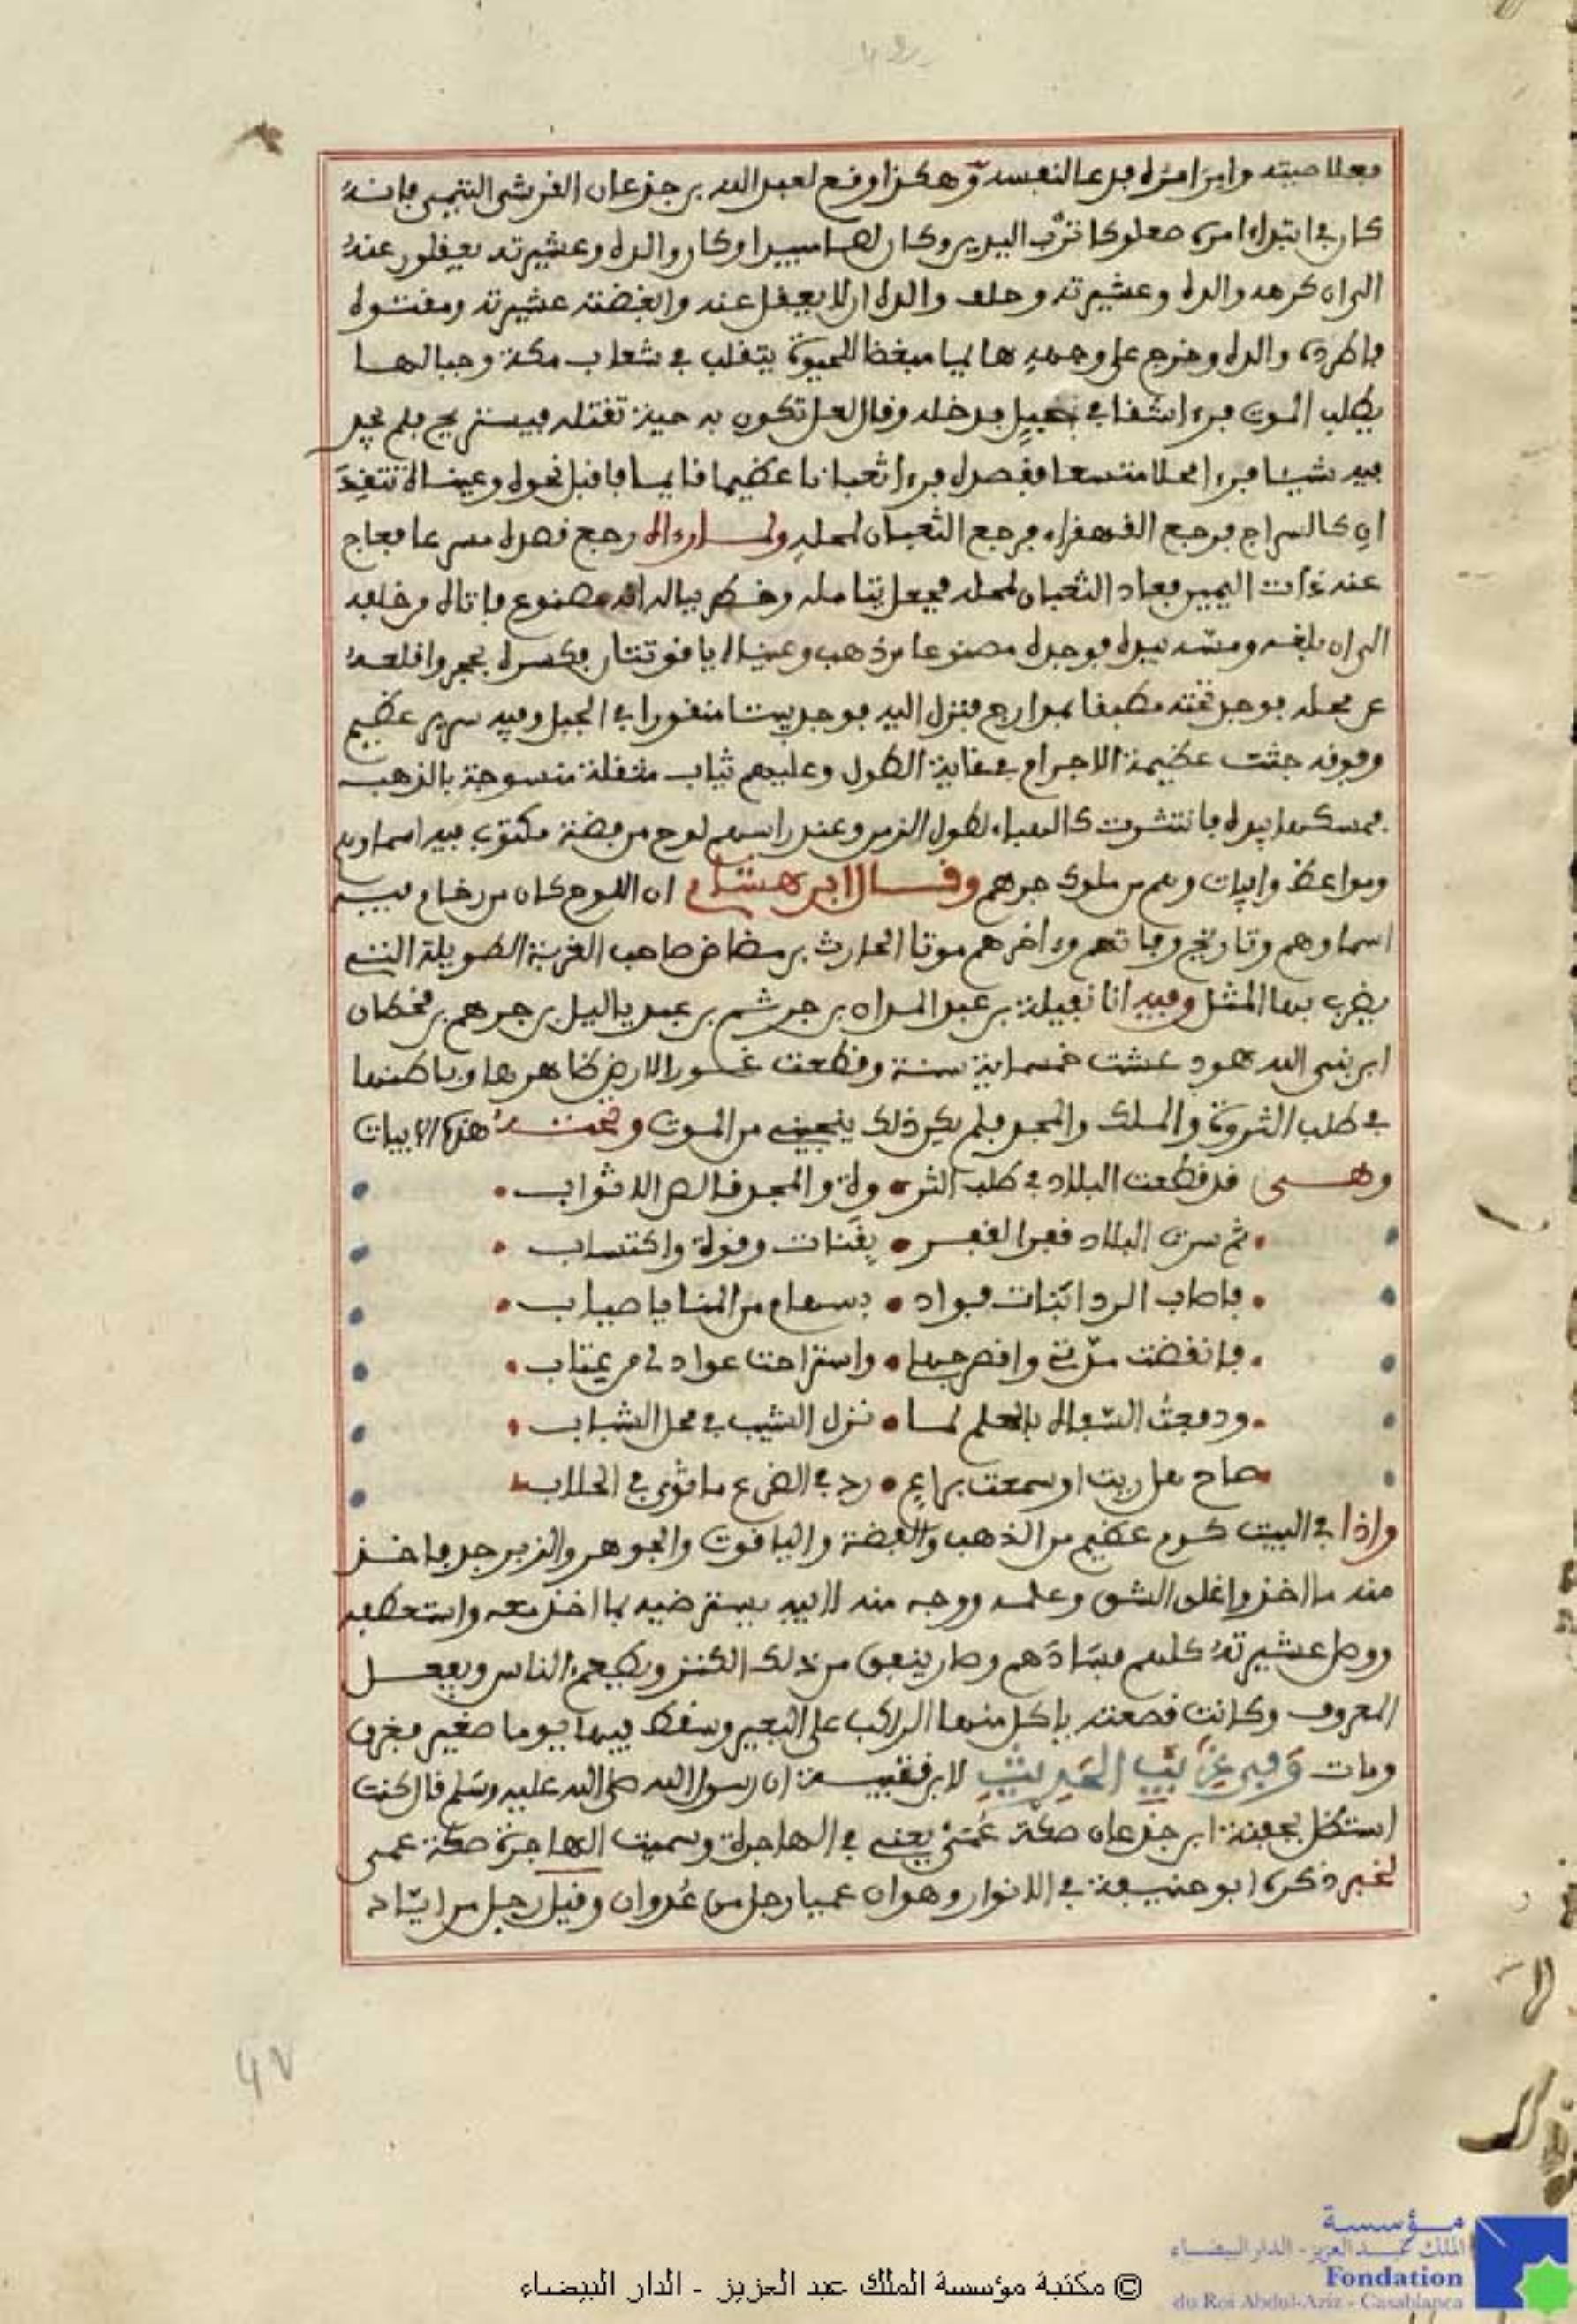 فعلا صيته وابن امره فدعا لنفسه وهكذا وقع لعبد الله بن جذعان القرشي التيمي فانه
كان في ابتداء امره صعلوكا ترب اليدين وكان لصا مبيدا وكان والده وعشيرته يعقلون عنه
الى ان كرهه والده وعشيرته وحلف والده ان لا يعقل عنه وابغضته عشيرته ومقتوه
فاطرده والده وخرج على وجهه هائما مبغضا للحيوة يتقلب في شعاب مكة وجبالها
يطلب الموت فرءا شقا في جبل فدخله وقال لعل تكون به حية تقتله فيستريح فلم يجد
فيه شيئا فرءا محلا متسعا فقصده فرءا ثعبانا عظيما قائما فاقبل نحوه وعيناه تتقد
ان كالسراج فرجع القهقراء فرجع الثعبان لمحله ولما رءاه رجع قصده مسرعا فعاج
عنه ذات اليمين فعاد الثعبان لمحله فجعل يتامله وخطر بباله انه مصنوع فاتاه من خلفه
الى ان بلغه ومسه بيده فوجده مصنوعا من ذهب وعيناه ياقوتتان فكسره بحجر واقلعه
عن محله فوجد تحته مطبقا بمدارج فنزل اليه فوجد بيتا منقورا في الجبل وفيه سرير عظيم
وفوقه جثث عظيمة الاجرام في غاية الطول وعليهم ثياب مثقلة منسوجة بالذهب
فمسكها بيده فانتثرت كالهباء لطول الزمن وعند راسهم لوح من فضة مكتوب فيه اسماوهم
ومواعظ وابيات وهم من ملوك جرهم وقال ابن هشام ان اللوح كان من رخام فيه
اسماوهم وتاريخ وفاتهم وءاخرهم موتا الحارث بن مضاض صاحب الغربة الطويلة التي
يضرب بها المثل وفيه انا نفيلة بن عبد المدان بن جرشم بن عبد ياليل بن جرهم بن قحطان
ابن نبي الله هود عشت خمسماية سنة وقطعت غور الارض ظاهرها وباطنها
في طلب الثروة والملك والمجد فلم يكن ذلك ينجيني من الموت وتحته هذه الابيات
وهي قد قطعت البلاد في طلب الثر • وة والمجد قالص الاثواب •
• ثم سرت البلاد قفرا لقفر • بقنات وقوة واكتساب •
• فاصاب الردا بنات فواد • بسهام من المنايا صياب •
• فانقضت مدتي واقصر جهلي • واستراحت عواذلي من عتاب •
• ودفعت السفاه بالحلم لما • نزل الشيب في محل الشباب •
• صاح هل ريت او سمعت براع • رد في الضرع ما قرى في الحلاب •
واذا في البيت كوم عظيم من الذهب والفضة والياقوت والجوهر والزبرجد فاخذ
منه ما اخذ واغلق الشق وعلمه ووجه منه لابيه يسترضيه بما اخذ معه واستعطفه
ووصل عشيرته كلهم فسادهم وصار ينفق من ذلك الكنز ويطعم الناس ويفعل
المعروف وكانت قصعته ياكل منها الراكب على البعير وسقط فيها يوما صغير فغرق
ومات وفي غريب الحديث لابن قتيبة ان رسول الله صلى الله عليه وسلم قال كنت
استظل بجفنة ابن جذعان صكة عمي يعني في الهاجرة وسميت الهاجرة صكة عمي
لخبر ذكره ابو حنيفة في الانوار وهو ان عميا رجل من عدوان وقيل رجل من اياد
47
© مكتبة مؤسسة الملك عبد العزيز - الدار البيضاء
مؤسسة
الملك عبد العزيز - الدار البيضاء
Fondation
du Roi Abdul-Aziz - Casablanca